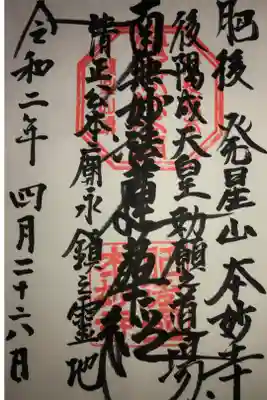 肥後 発星山 本妙寺
後陽成天皇勅願之道場
南無妙法蓮華経
清正公本廟永鎮之霊地
令和二年 四月二十六日